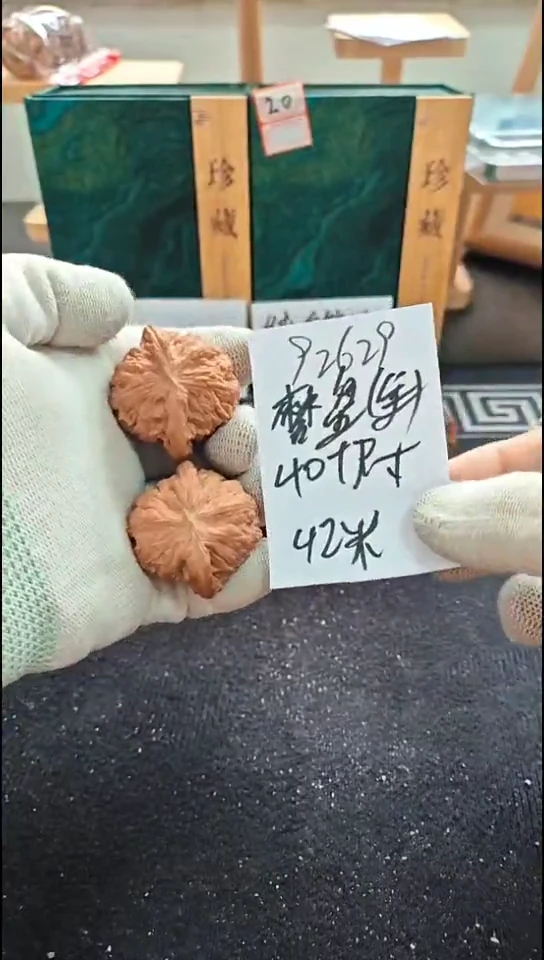 20
珍藏
珍藏
92629
磨盘(年)
40+尺寸
42米